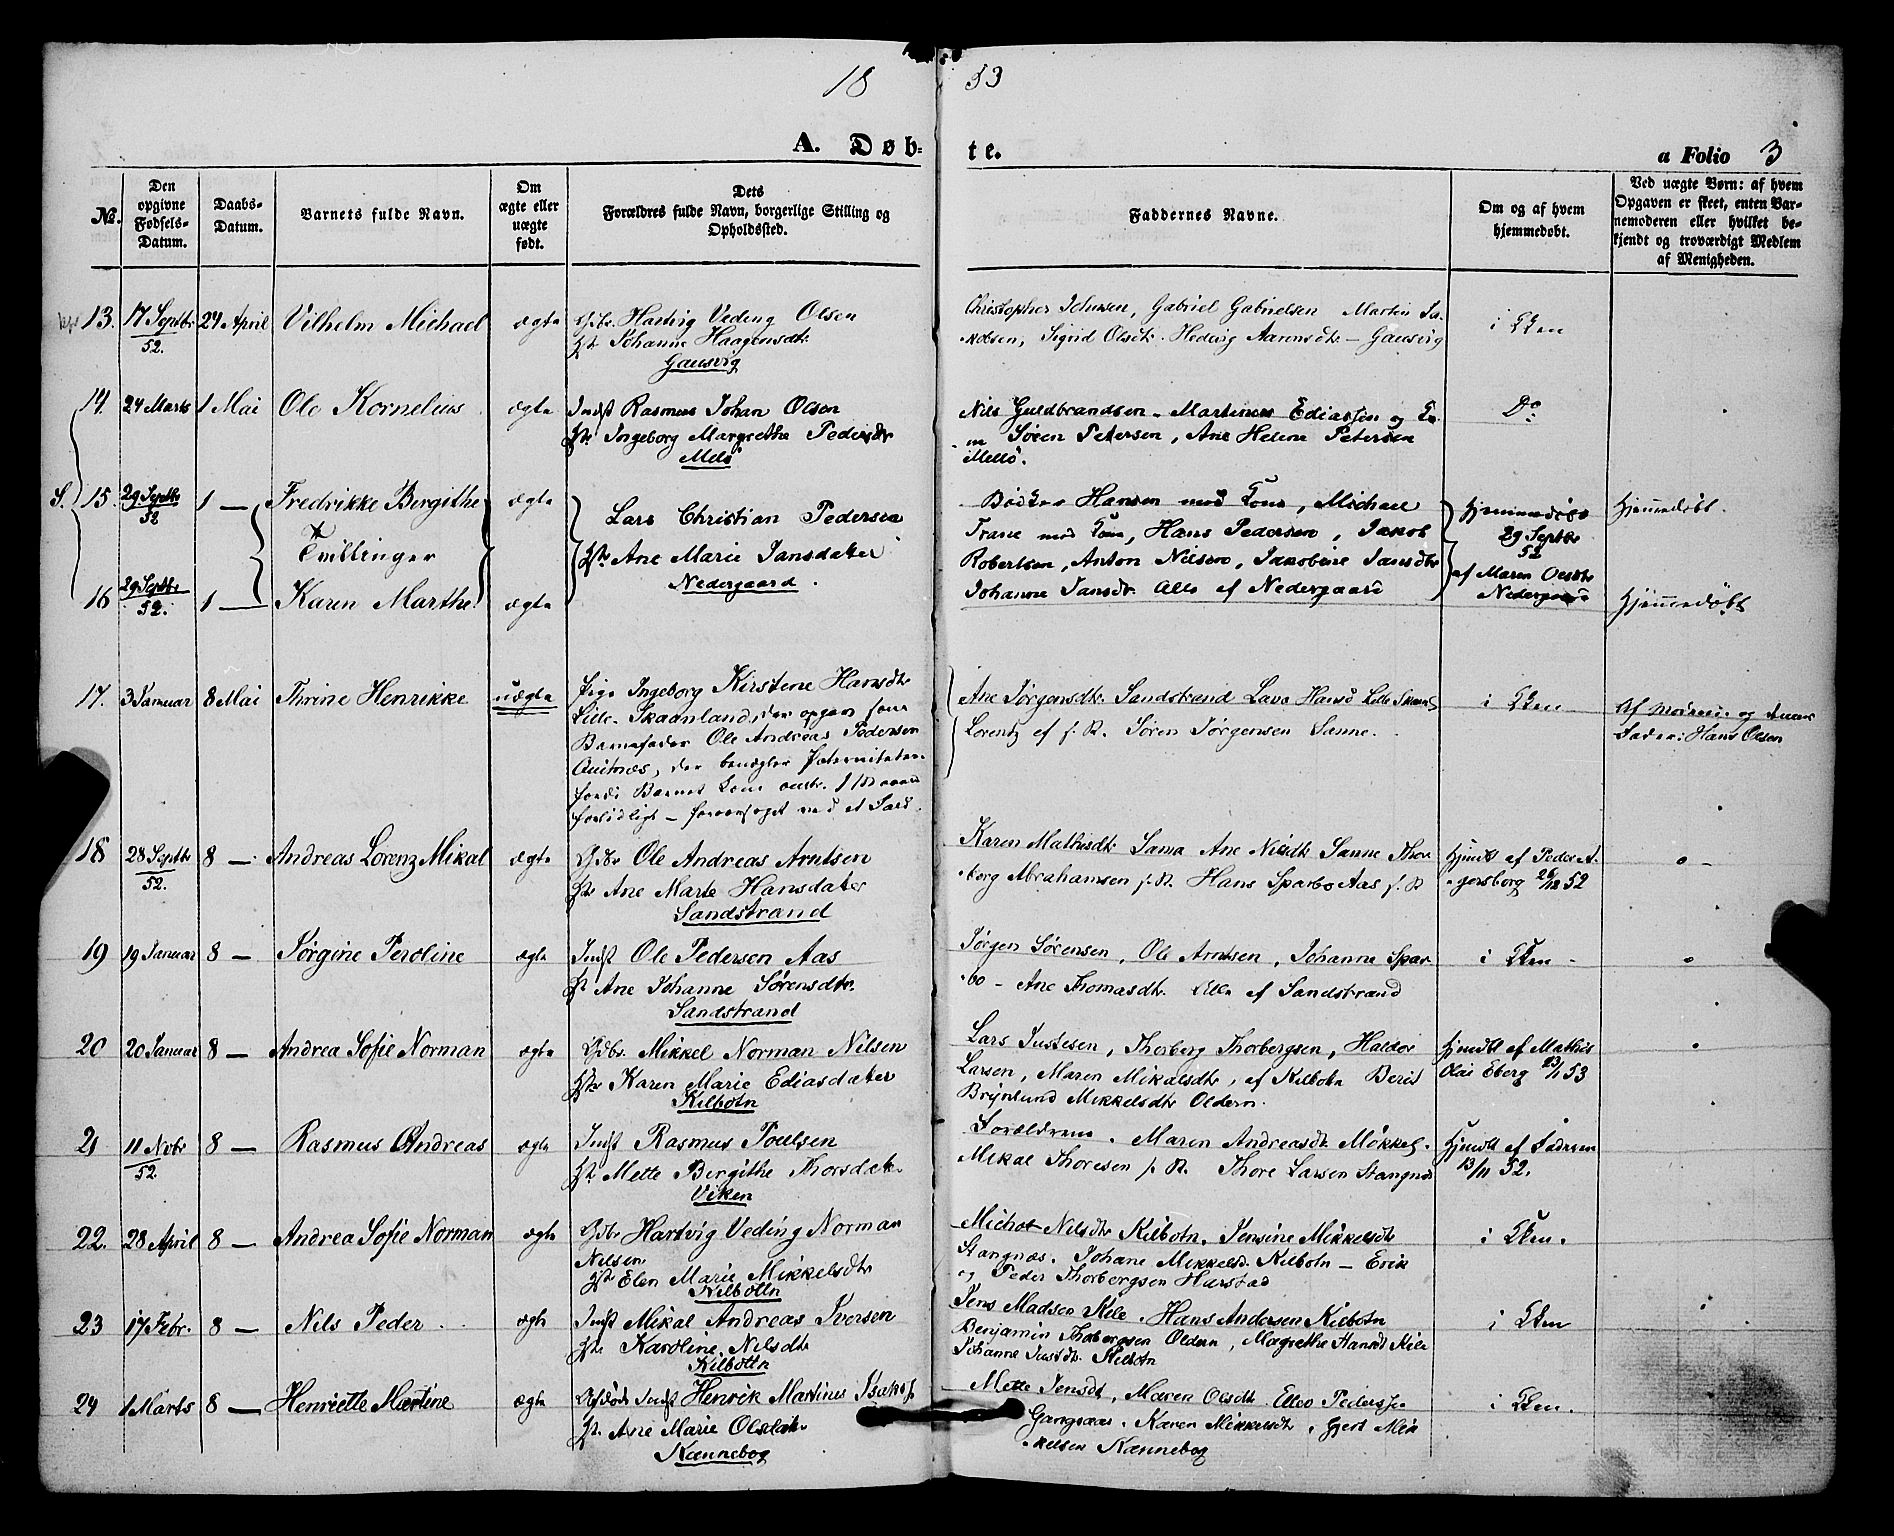 18 53
A. Døb- te. a Folio 3
No. Den opgivne Fødsels-Datum. Daabs-Datum. Barnets fulde Navn. Om ægte eller uægte født. Dets Forældres fulde Navn, borgerlige Stilling og Opholdssted. Faddernes Navne. Om og af hvem hjemmedøbt. Ved uægte Børn: af hvem Opgaven er skeet, enten Barnemoderen eller hvilket bekjendt og troværdigt Medlem af Menigheden.
13. 17 Septbr 52. 24 April Vilhelm Michael ægte Gdbr. Hartvig Veding Olsen
Johanne Haagensdtr.
Gausvig
Christopher Johnsen, Gabriel Gabrielsen Martin Ja-
kobsen, Sigrid Olsdtr. Hedevig Aarensdtr – Gausvig
i Kken
14. 24 Marts 1 Mai Ole Kornelius ægte Indst Rasmus Johan Olsen
Ingeborg Margrethe Pedersdtr
Melø
Nils Guldbrandsen. Martinus Ediassen og Ko-
ne Søren Petersen, Ane Helene Petersen
Mellø.
Do
S. 15. 29 Septbr 52 1 — Fredrikke Bergithe ægte
Tvillinger
16 29 Septbr 52. 1 — Karen Marthe ægte
Lars Christian Pedersen
Ane Marie Jansdater
Nedergaard.
Bødker Hansen med Kone, Michael
Trane med Kone, Hans Pedersen, Jakob
Robertsen, Anton Nilsen, Jakobine Jansdtr
Johanne Jansdtr. Alle af Nedergaard
Hjemmedøbt
29 Septbr
52
af Maren Olsdtr
Nedergaard
Hjemmedøbt.
Hjemmedøbt
17. 3 Januar 8 Mai Thrine Henrikke uægte Pige Ingeborg Kirstine Hansdtr
Lille-Skaanland, der opgav som
Barnefader Ole Andreas Pedersen
, der benægter Paterniteten
fordi Barnet kom
Ane Jørgensdtr. Sandstrand Lava Hansd Lille Skaanl
Lorentz af f. St. Søren Jørgensen Sanne.
i Kken
Af Moderen og dennes
Fader: Hans Olsen
18 28 Septbr 52. 8 — Andreas Lorenz Mikal ægte Gdbr Ole Andreas Arntsen
Ane Marte Hansdater
Sandstrand
Karen Mathisdtr Sama Ane Nilsdtr Sanne Thor-
berg Abrahamsen f. St. Hans Sparbo Aas f. St
Hjmdbt af Peder A-
gersborg 26/12 52
19 19 Januar 8 — Jørgine Peroline ægte Indst Ole Pedersen Aas
Ane Johanne Sørensdtr.
Sandstrand
Jørgen Sørensen, Ole Arntsen, Johanne Spar-
bo – Ane Thomasdtr. Alle af Sandstrand
i Kken
20 20 Januar 8 — Andrea Sofie Norman ægte Gdbr. Mikkel Norman Nilsen
Karen Marie Ediasdater
Kilbotn
Lars Justesen, Thorberg Thorbergsen, Haldor
Larsen, Maren Mikalsdtr, af Kilbotn Berit
Brynlund Mikkelsdtr Oldern.
Hjmdbt af Mathis
Olai Eberg 23/1 53
21 11 Novbr 52. 8 — Rasmus Andreas ægte Indst Rasmus Poulsen
Mette Bergithe Thorsdater
Viken
Forældrene. Maren Andreasdtr Møkkel.
Mikal Thoresen f. St. Thore Larsen Stangnæs
Hjmdbt af Faderen
13/11 52.
22. 28 April 8 — Andrea Sofie Norman ægte Gdbr Hartvig Veding Norman
Nilsen
Elen Marie Mikkelsdtr
Kilbotn
Nilsdtr Kilbotn, Jensine Mikkelsdtr
Stangnæs. Johane Mikkelsd. Kilbotn – Erik
og Peder Thorbergsen Harstad
i Kken.
23 17 Febr. 8 — Nils Peder ægte Indst Mikal Andreas Iversen
Karoline Nilsdtr
Kilbotn
Jens Madsen Kile. Hans Andersen Kilbotn
Benjamin Thorbergsen Oldern, Magrethe Hansdtr Kile
Johanne Justdtr. Kilbotn
i Kken
24 1 Marts 8 — Henriette Martine ægte Indst Henrik Martinus
Ane Marie Olsdater
Kænnebog
Mette Jensdt, Maren Olsdtr Peders
Gangsaas. Karen Mikkelsdtr, Gjert Mik-
kelsen Kænnebog
i Kken.